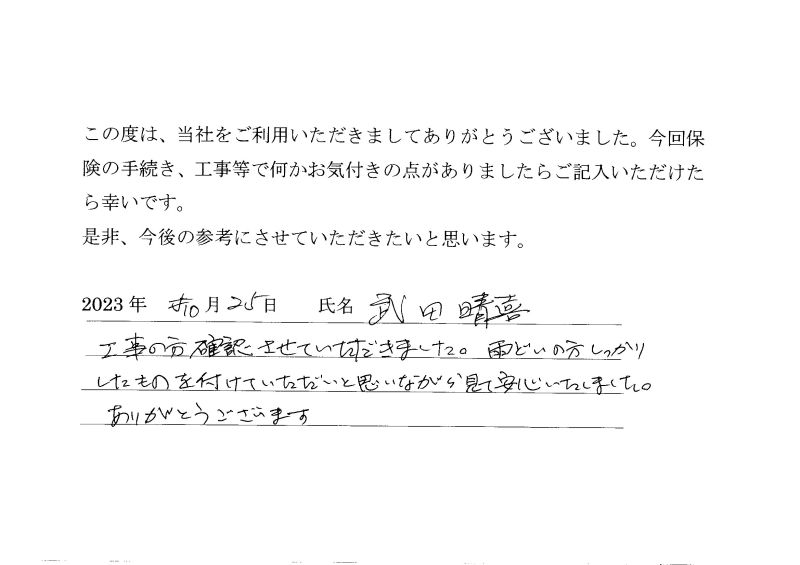 この度は、当社をご利用いただきましてありがとうございました。今回保
険の手続き、工事等で何かお気付きの点がありましたらご記入いただけた
ら幸いです。
是非、今後の参考にさせていただきたいと思います。
2023 年 10月25日 氏名 武田晴喜
工事の方確認させていただきました。雨どいの方しっかり
したものを付けていただいと思いながら見て安心いたしました。
ありがとうございます